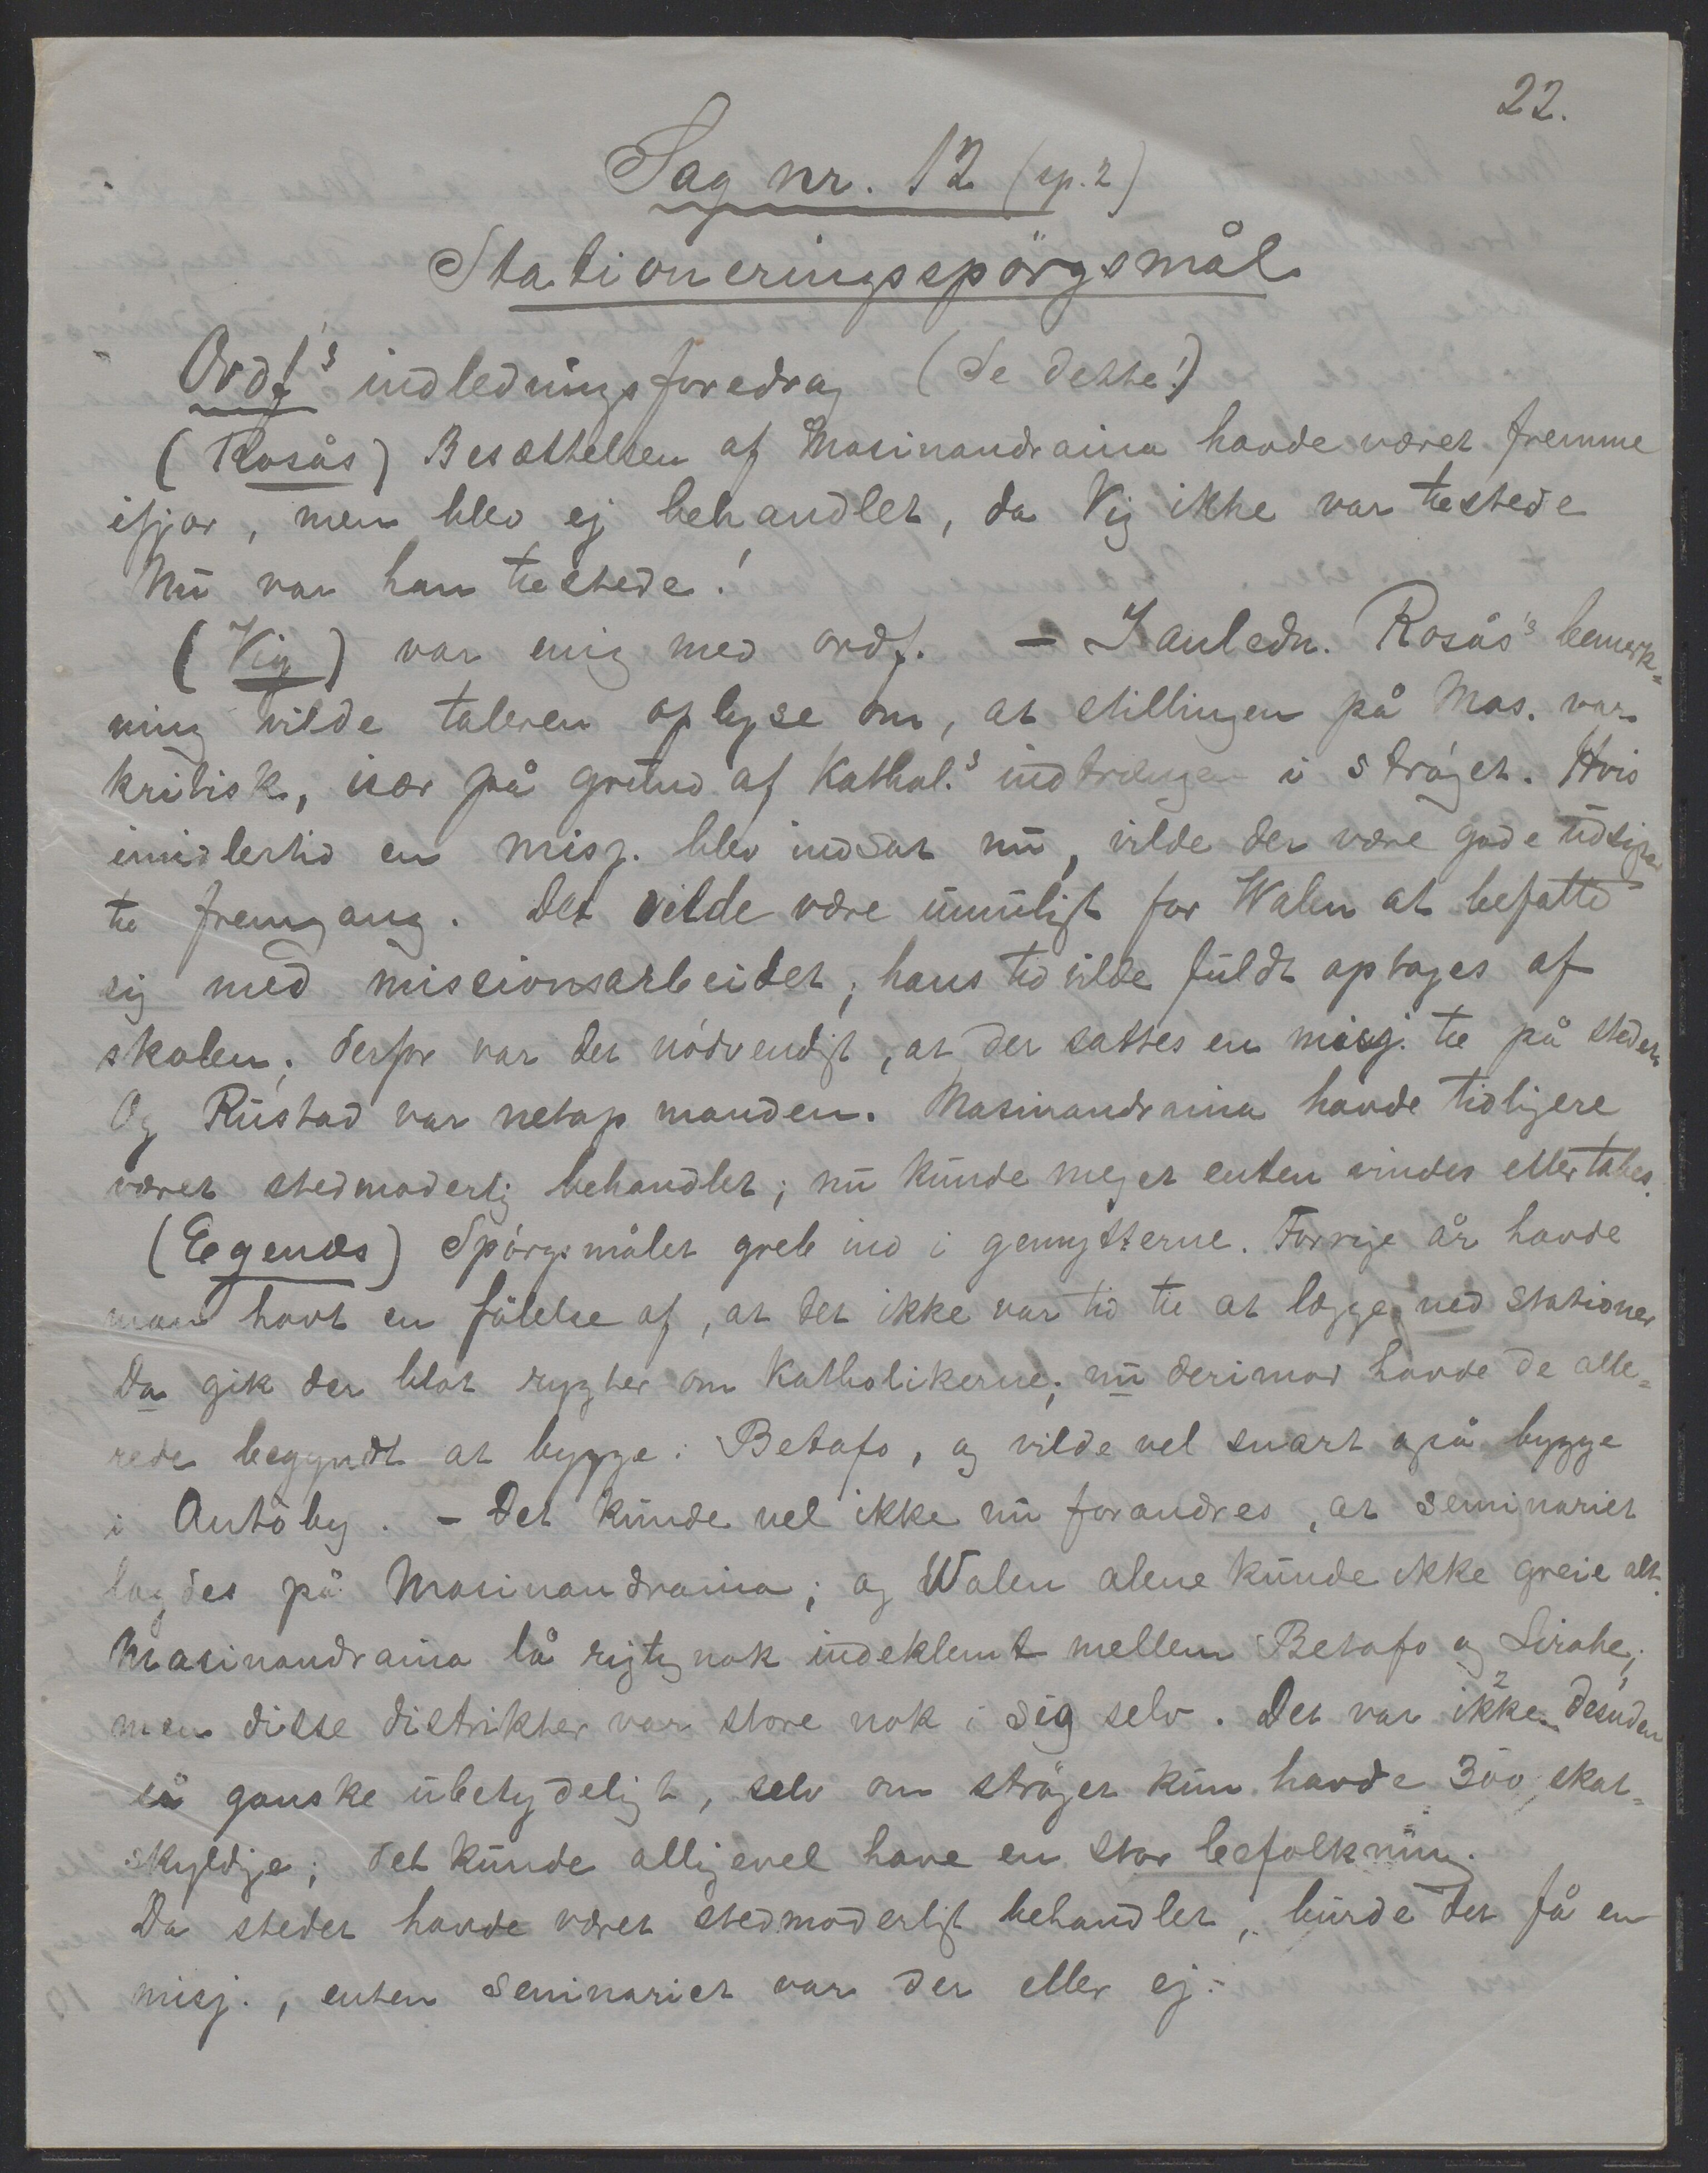 22.
Sag nr. 12 (sp. 2)
Stationeringsspörgsmål
Ordf's indledningsforedrag (Se dette!)
(Rosås) Besættelsen af Masinandraina havde været fremme
ifjor, men blev ej behandlet, da Vig ikke var tilstede
Nu var han tilstede!
(Vig) var enig med ordf. – I anledn. Rosås's bemerk=
ning vilde taleren oplyse om, at stillingen på Mas. var
kritisk, især på grund af Kathol.'s indtrængen i strøget. Hvis
imidlertid en misj. blev indsat nu, vilde der være gode udsigter
til fremgang. Det vilde være umuligt for Walen at befatte
sig med missionsarbeidet, hans tid vilde fuldt optages af
skolen; derfor var det nödvendigt, at der sattes en misj. til på stedet.
Og Rustad var netop manden. Masinandraina havde tidligere
været stedmoderlig behandlet; nu kunde meget enten vindes eller tabes.
(Egenæs) Spörgsmålet greb ind i gemytterne. Forrige år havde
man havt en fölelse af, at det ikke var tid til at lægge ned stationer
Da gik der blot rygter om Katholikerne; nu derimod havde de alle=
rede begyndt at bygge i Betafo, og vilde vel snart også bygge
i Antoby. – Det kunde vel ikke nu forandres, at seminariet
lagdes på Masinandraina; og Walen alene kunde ikke greie alt.
Masinandraina lå rigtignok indeklemt mellem Betafo og Sirabe;
men disse distrikter var store nok i sig selv. Det var ikke desuden
så ganske ubetydeligt, selv om strøget kun havde 300 skat=
skyldige; det kunde alligevel have en stor befolkning.
Da stedet havde været stedmoderligt behandlet, burde det få en
misj., enten seminariet var der eller ej.